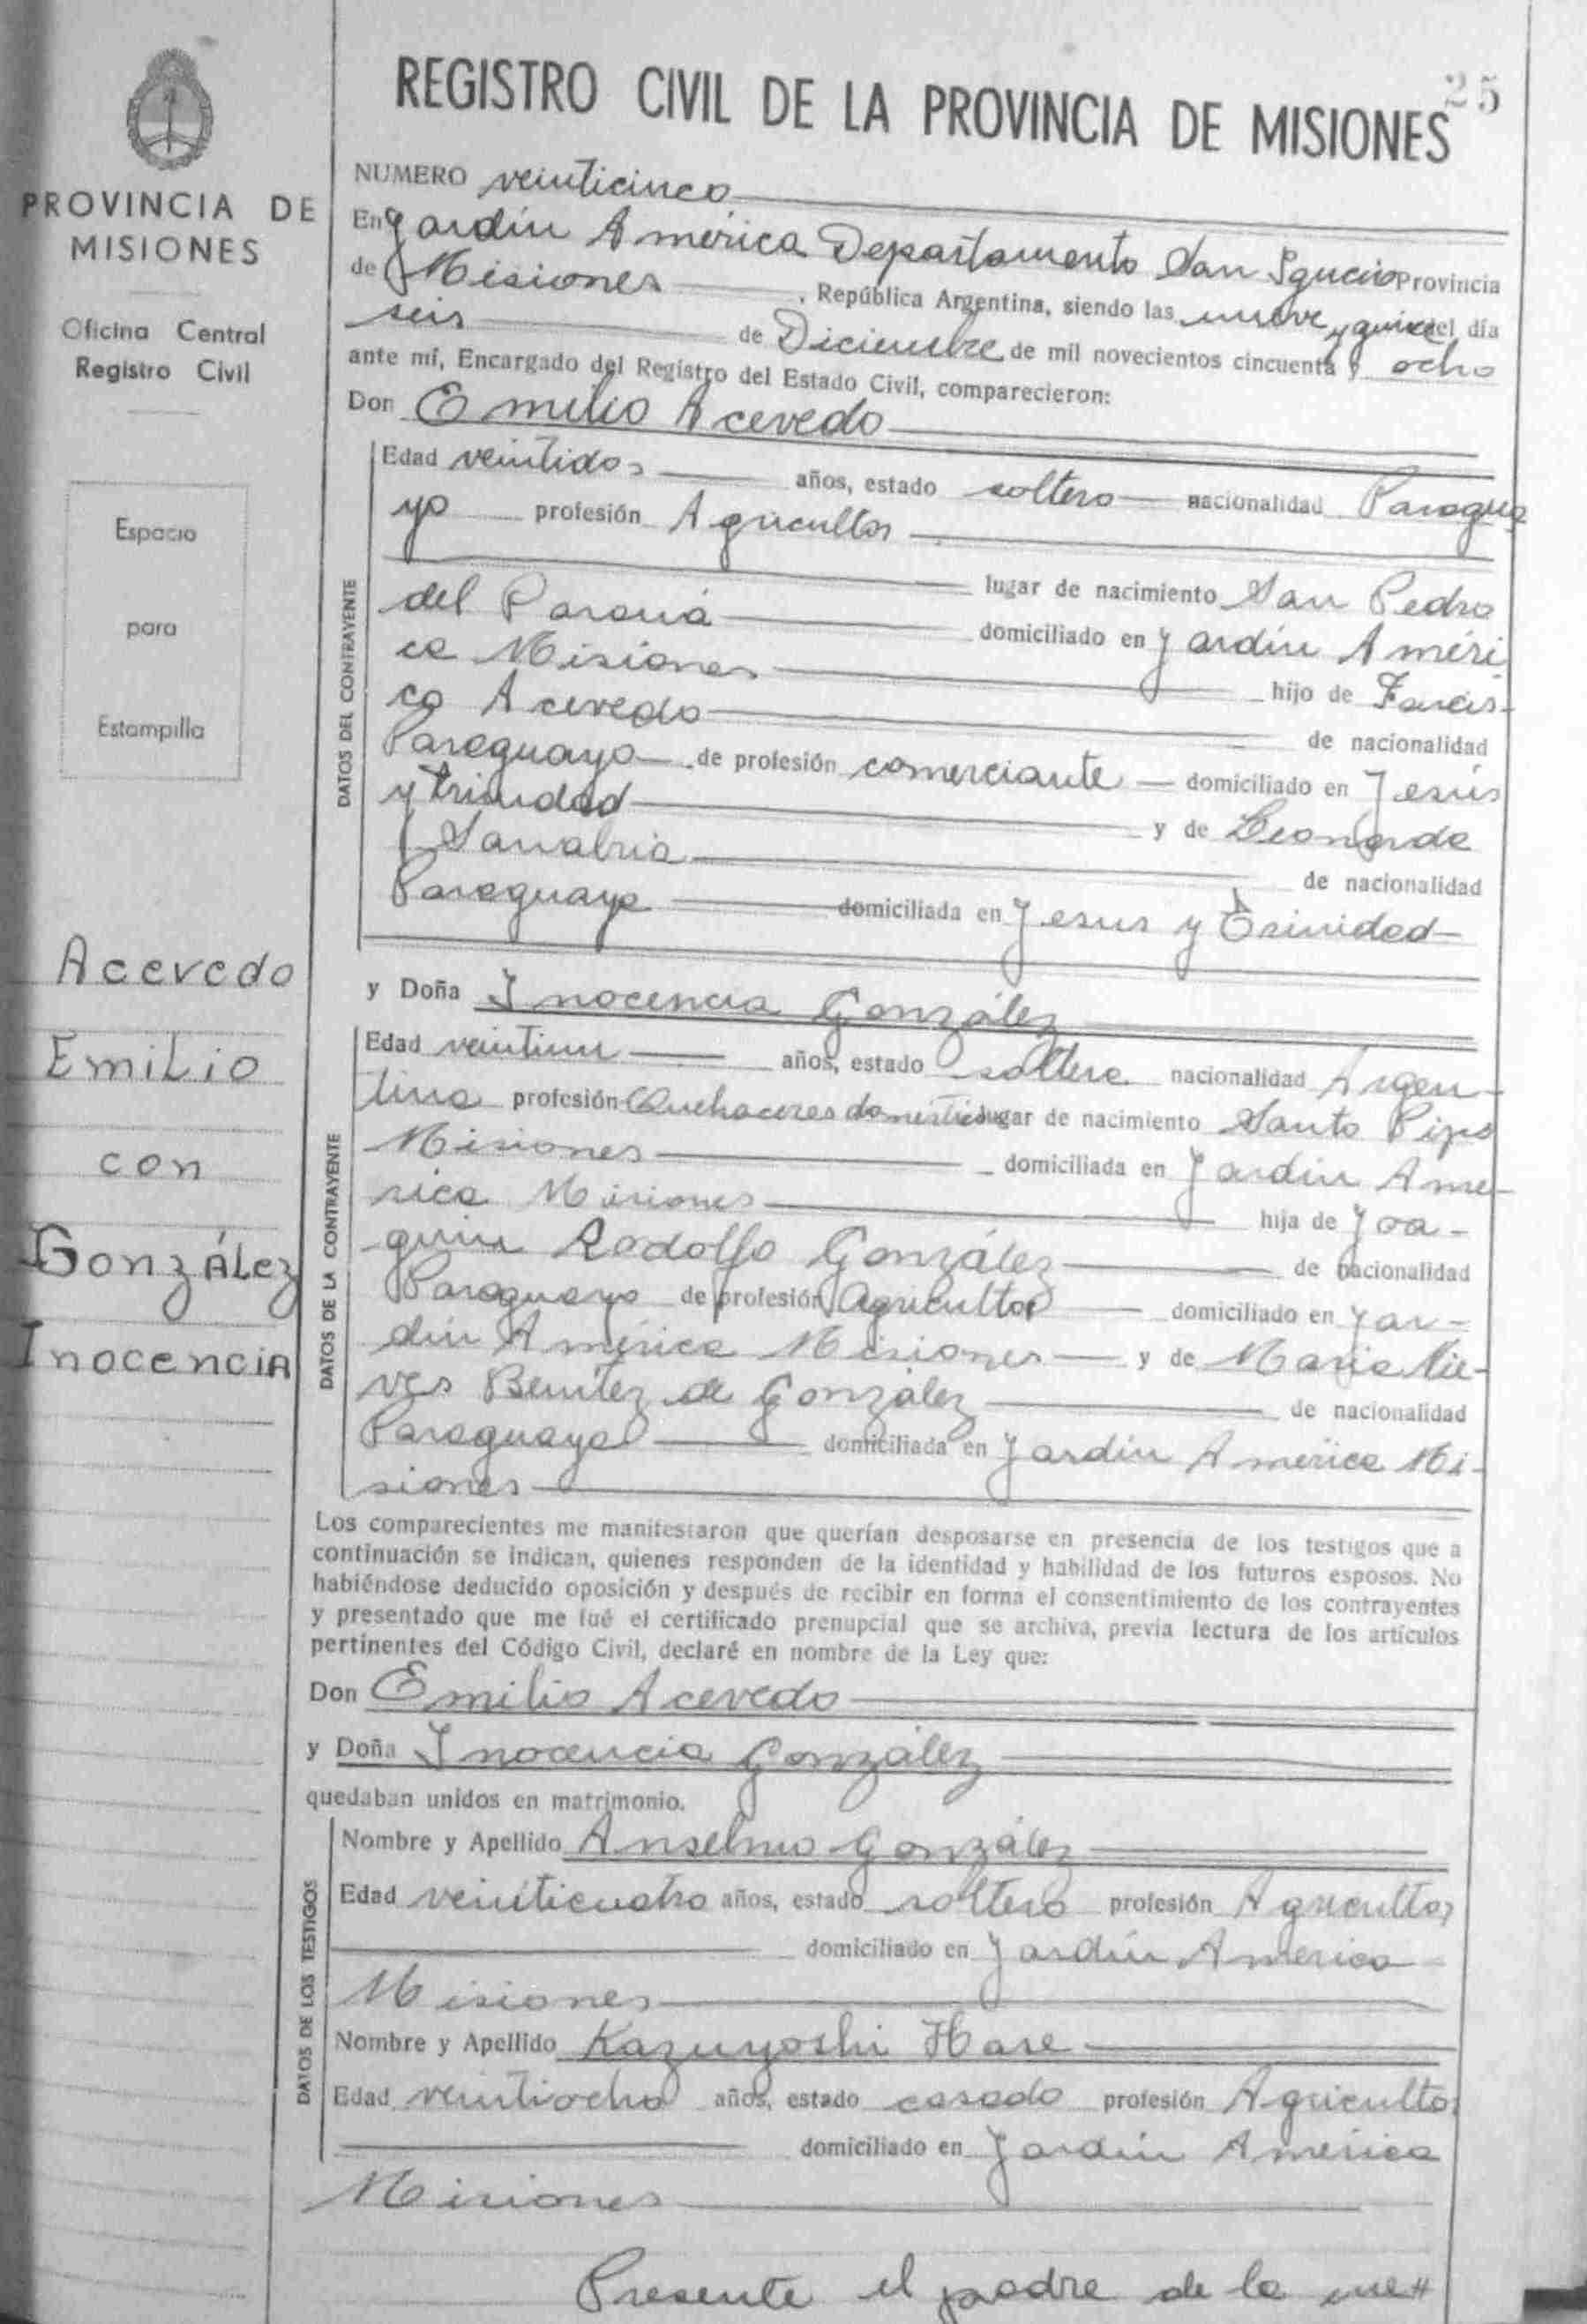 25
REGISTRO CIVIL DE LA PROVINCIA DE MISIONES
PROVINCIA DE
MISIONES
Oficina Central
Registro Civil
Espacio
para
Estampilla
Acevedo
Emilio
con
González
Inocencia
NUMERO veinticinco
En Jardín América Departamento San Ignacio Provincia
de Misiones , República Argentina, siendo las nueve y quince del día
seis de Diciembre de mil novecientos cincuenta y ocho
ante mí, Encargado del Registro del Estado Civil, comparecieron:
Don Emilio Acevedo
DATOS DEL CONTRAYENTE
Edad veintidos años, estado soltero nacionalidad Paragua
yo profesión Agricultor
lugar de nacimiento San Pedro
del Paraná domiciliado en Jardín Améri
ca Misiones hijo de Francis-
co Acevedo de nacionalidad
Paraguayo de profesión comerciante domiciliado en Jesús
y Trinidad y de Leonarda
Sanabria de nacionalidad
Paraguaya domiciliada en Jesus y Trinidad
y Doña Inocencia González
DATOS DE LA CONTRAYENTE
Edad veintiun años, estado soltera nacionalidad Argen-
tina profesión Quehaceres domésticos lugar de nacimiento Santo Pipo
Misiones domiciliada en Jardín Amé-
rica Misiones hija de Joa-
quin Rodolfo González de nacionalidad
Paraguayo de profesión Agricultor domiciliado en Jar-
dín América Misiones y de Maria Nie-
ves Benítez de González de nacionalidad
Paraguaya domiciliada en Jardín América Mi-
siones
Los comparecientes me manifestaron que querían desposarse en presencia de los testigos que a
continuación se indican, quienes responden de la identidad y habilidad de los futuros esposos. No
habiéndose deducido oposición y después de recibir en forma el consentimiento de los contrayentes
y presentado que me fué el certificado prenupcial que se archiva, previa lectura de los artículos
pertinentes del Código Civil, declaré en nombre de la Ley que:
Don Emilio Acevedo
y Doña Inocencia González
quedaban unidos en matrimonio.
DATOS DE LOS TESTIGOS
Nombre y Apellido Anselmo González
Edad veinticuatro años, estado soltero profesión Agricultor
domiciliado en Jardín América
Misiones
Nombre y Apellido Kazuyoshi Hase
Edad veintiocho años, estado casado profesión Agricultor
domiciliado en Jardín América
Misiones
Presente el padre de la me#